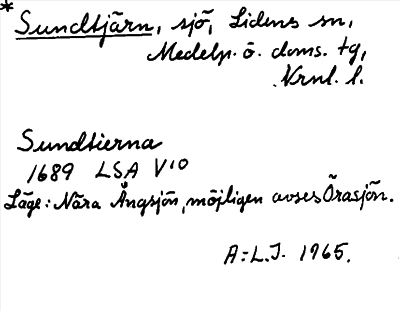 * Sundtjärn, sjö, Lidens sn,
Medelp. ö. doms. tg,
Vrnl. l.
Sundtierna
1689 LSA V10
Läge: Nära Ångsjön, möjligen avses Örasjön.
A:L.J. 1965.